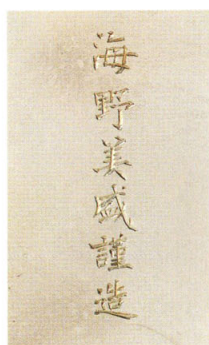 海野美盛謹造